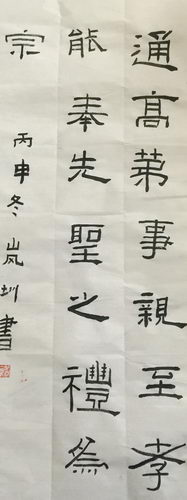 通高第事親至孝
能奉先聖之禮為
宗
丙申冬嵐圳書